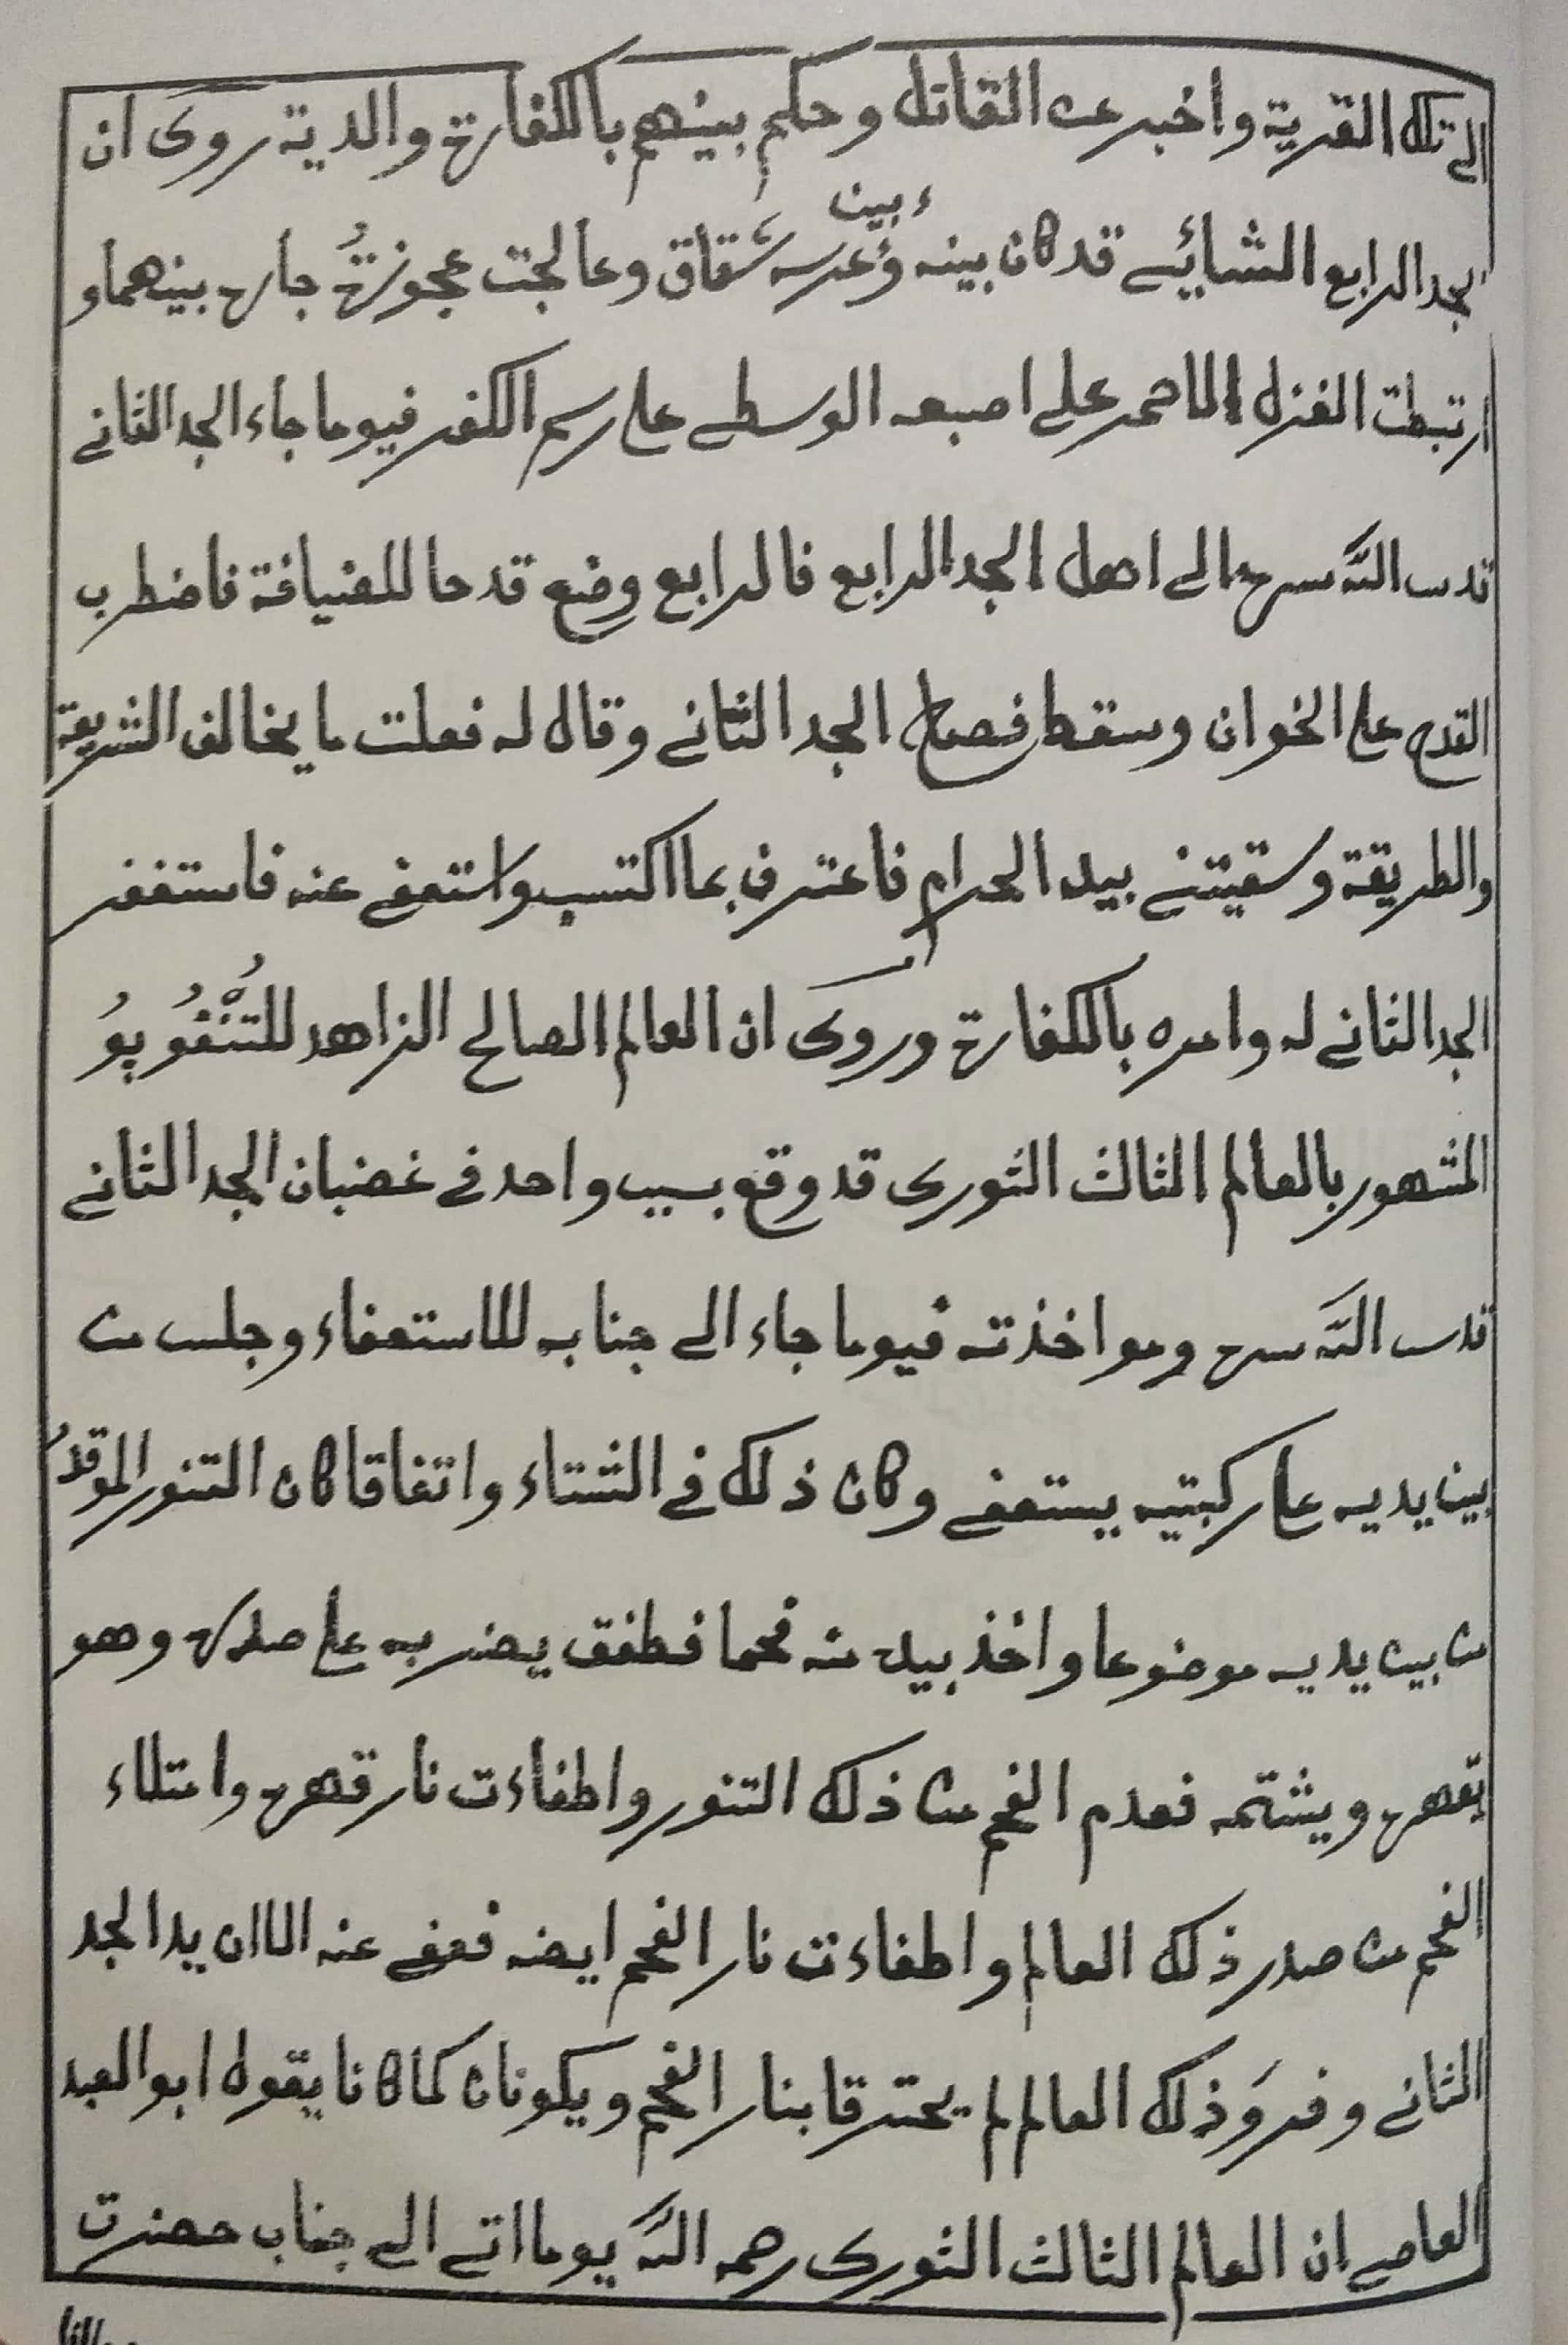 الى تلك القرية واخبر عن القاتل وحكم بينهم بالكفارة والدية روى ان
الجد الرابع الشائي قد كان بينه وبين عرسه شقاق وعالجت عجوزةُ جاره بينهما و
ارتبطت الغزل الاحمر على اصبعه الوسطى على رسم الكفر فيوما جاء الجد الثاني
قدس اللّه سره الى اهل الجد الرابع فالرابع وضع قدحا للضيافة فاضطرب
القدح على الخوان وسقط فصاح الجد الثاني وقال له فعلت ما يخالف الشريعة
والطريقة وسقيتني بيد الحرام فاعترف بما اكتسب واستعفى عنه فاستغفر
الجد الثاني له وامره بالكفارة وروى ان العالم الصالح الزاهد
المشهور بالعالم الثالث الثورى قد وقع بسبب واحد في غضبان الجد الثاني
قدس اللّه سره ومواخذته فيوما جاء الى جنابه للاستعفاء وجلس من
بين يديه على ركبتيه يستعفى وكان ذلك في الشتاء واتفاقا كان التنور الموقدُ
من بين يديه موضوعا واخذ بيده منه فحما فطفق يضربه على صدره وهو
يقهره ويشتمه فعدم الفحم من ذلك التنور واطفاءت نار قهره وامتلاء
الفحم من صدر ذلك العالم واطفاءت نار الفحم ايضه فعفى عنه الا ان يد الجد
الثاني وفروَ ذلك العالم لم يحترقا بنار الفحم ويكونان كما كانا يقول ابو العبد
العاصى ان العالم الثالث الثورى رحمه اللّه يوما اتى الى جناب حضرت